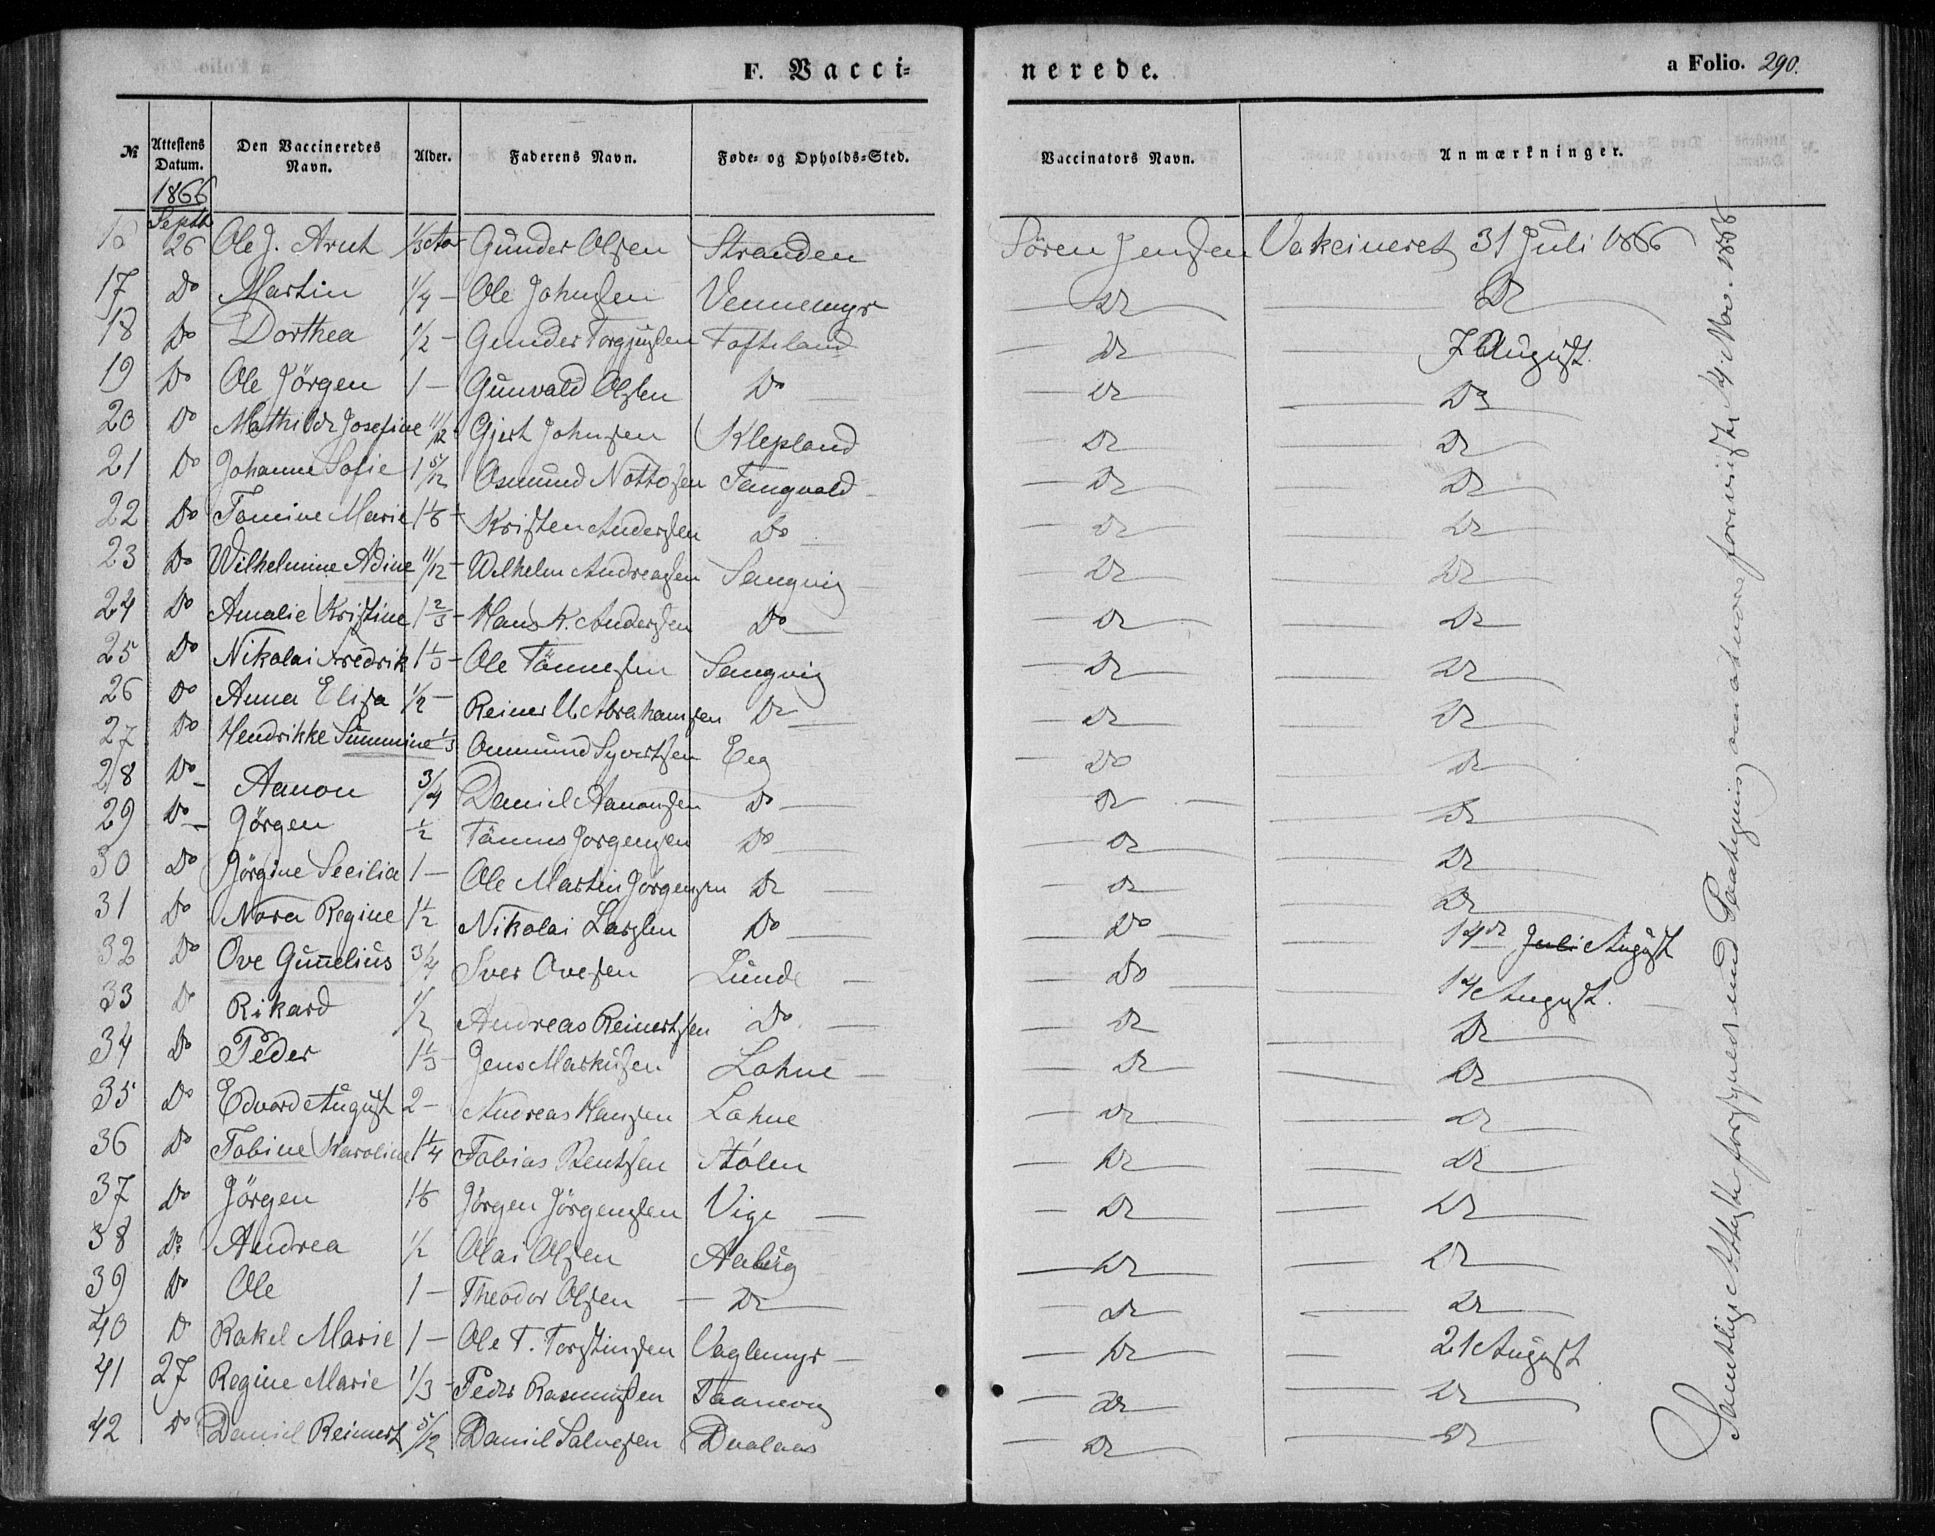 F. Vacci=
nerede.
a Folio. 290.
№ Attestens Datum. Den Vaccineredes Navn. Alder. Faderens Navn. Føde- og Opholds-Sted. Vaccinators Navn. Anmærkninger.
1866
Septbr
26 Ole J. Arnt 1/3 Gunder Olsen Stranden Sören Jensen Vakcineret 31 Juli 1866
17 Do Martin 1/4 – Ole Johnsen Vennemyr Do Do
18 Do Dorthea 1/2 – Gunder Torgjusen Tofteland Do 7 August.
19 Do Ole Jörgen 1 – Gunvald Olsen Do Do Do
20 Do Mathilde Josefine 11/12 Gjert Johnsen Klepland Do Do
21 Do Johanne Sofie 1 5/12 Osmund Nottosen Tangvald Do Do
22 Do Tomine Marie 1 1/6 – Kristen Andersen Do Do Do
23 Do Wilhelmine Adine 11/12 – Wilhelm Andreasen Langvig Do Do
24 Do Amalie Kristine 1 2/3 – Hans K. Andersen Do Do Do
25 Do Nikolai Fredrik 1 1/3 – Ole Tönnesen Langvig Do Do
26 Do Anna Elisa 1/2 – Reiner U. Abrahamsen Do Do Do
27 Do Hendrikke Summine 1/3 Onmund Syvertsen Eeg Do Do
28 Do Aanon 3/4 Daniel Aanonsen Do Do Do
29 Do Jörgen 1/2 Tönnes Jorgensen Do Do Do
30 Do Jörgine Secilia 1 – Ole Martin Jörgensen Do Do Do
31 Do Nora Regine 1 1/2 Nikolai Larsen Do Do 14de Juli August
32 Do Ove Gunelius 3/4 Sver Ovesen Lunde Do 14 August.
33 Do Rikard 1/2 Andreas Reinertsen Do Do Do
34 Do Peder 1 1/3 – Jens Markusen Lohne Do Do
35 Do Edvard August 2 – Andreas Hansen Lohne Do Do
36 Do Tobine Karoline 1 1/4 Tobias Bentsen Stölen Do Do
37 Do Jörgen 1 1/6 Jörgen Jörgensen Vige Do Do
38 Do Andrea 1/2 Olai Olsen Aaberg Do Do
39 Do Ole 1 – Theodor Olsen Do Do Do
40 Do Rakel Marie 1 – Ole T. Torstinsen Vaglemyr Do 21 August
41 27 Regine Marie 1/3 – Peder Rasmussen Taanevig Do Do
42 Do Daniel Reinert 5/12 Daniel Salvesen Dvalaas Do Do
Samtlige Attester forsynet med Paategning om at være foreviste 4 Mai 1866